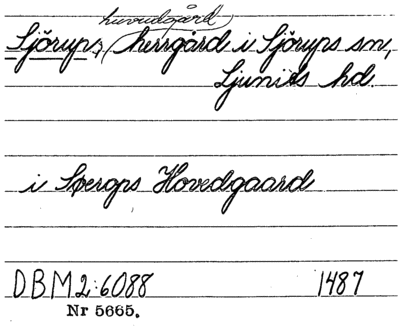 huvudgård
Sjörups, herrgård i Sjörups sn,
Ljunits hd.
i Søergps Hovedgaard
DBM 2:6088 1487
Nr 5665.